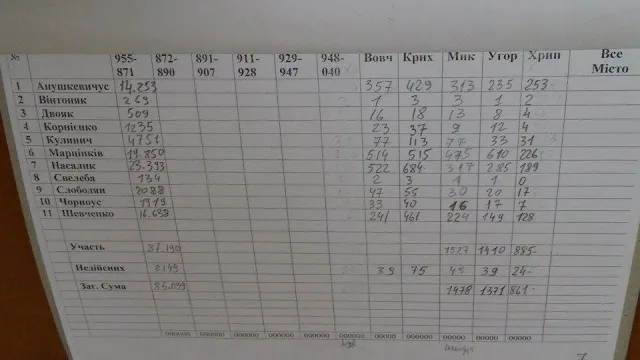 № 955-871 872-890 891-907 911-928 929-947 948-040 Вовч Крих Мик Угор Хрип Все Місто
1 Анушкевичус 14.253 357 429 313 235 253
2 Вінтоняк 269 1 3 3 1 2
3 Двояк 509 16 18 13 8 4
4 Корнієнко 1235 23 37 9 12 4
5 Кулинич 4751 77 113 77 33 31
6 Марцінків 19.850 514 515 475 610 226
7 Насалик 522 684 317 285 189
8 Свелеба 134 2 3 1 1 0
9 Слободян 2088 47 55 30 20 17
10 Чорноус 1919 33 40 16 17 7
11 Шевченко 16.638 241 461 224 149 128
Участь 1527 1410 885-
Недійсних 89 75 45 39 24-
Заг. Сума 1478 1371 861-
000000 000000 000000 000000 000000 000000 00000 00000 00000 00000 00000